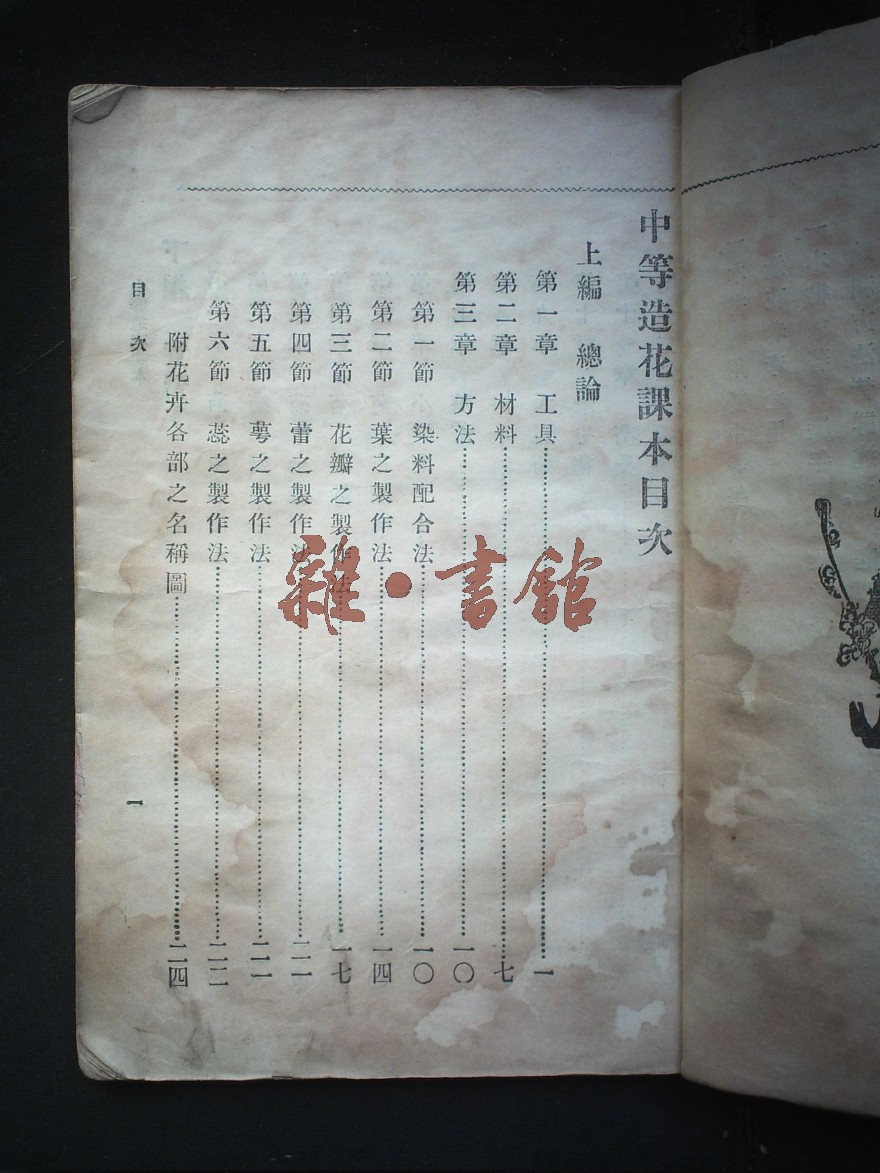 中等造花課本目次
上編 總論
第一章 工具……一
第二章 材料……七
第三章 方法……一〇
第一節 染料配合法……一〇
第二節 葉之製作法……一四
第三節 花瓣之製作法……一七
第四節 蕾之製作法……二一
第五節 萼之製作法……二二
第六節 蕊之製作法……二二
附花卉各部之名稱圖……二四
目次
一
雜·書館